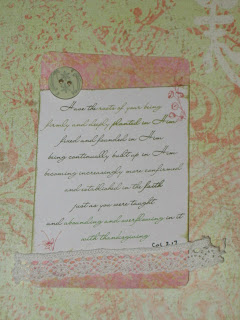 Have the roots of your being
firmly and deeply planted in Him
fixed and founded in Him
being continually built up in Him
becoming increasingly more confirmed
and established in the faith
just as you were taught
and abounding and overflowing in it
with thanksgiving
Col 2:17